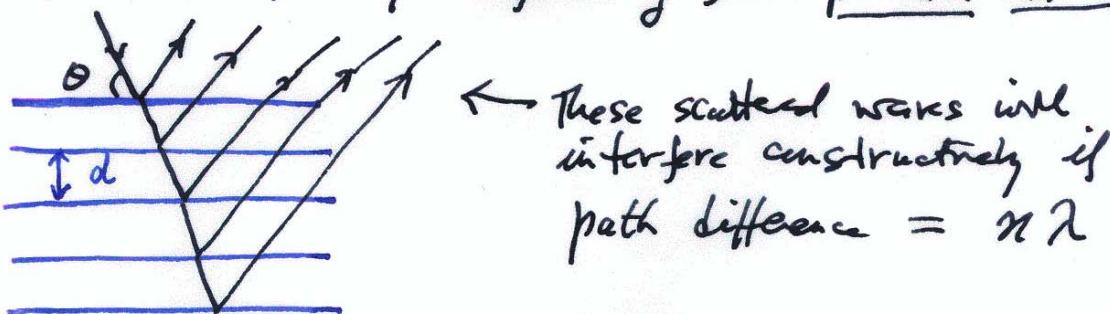 θ
d
← These scattered waves will
interfere constructively if
path difference = nλ